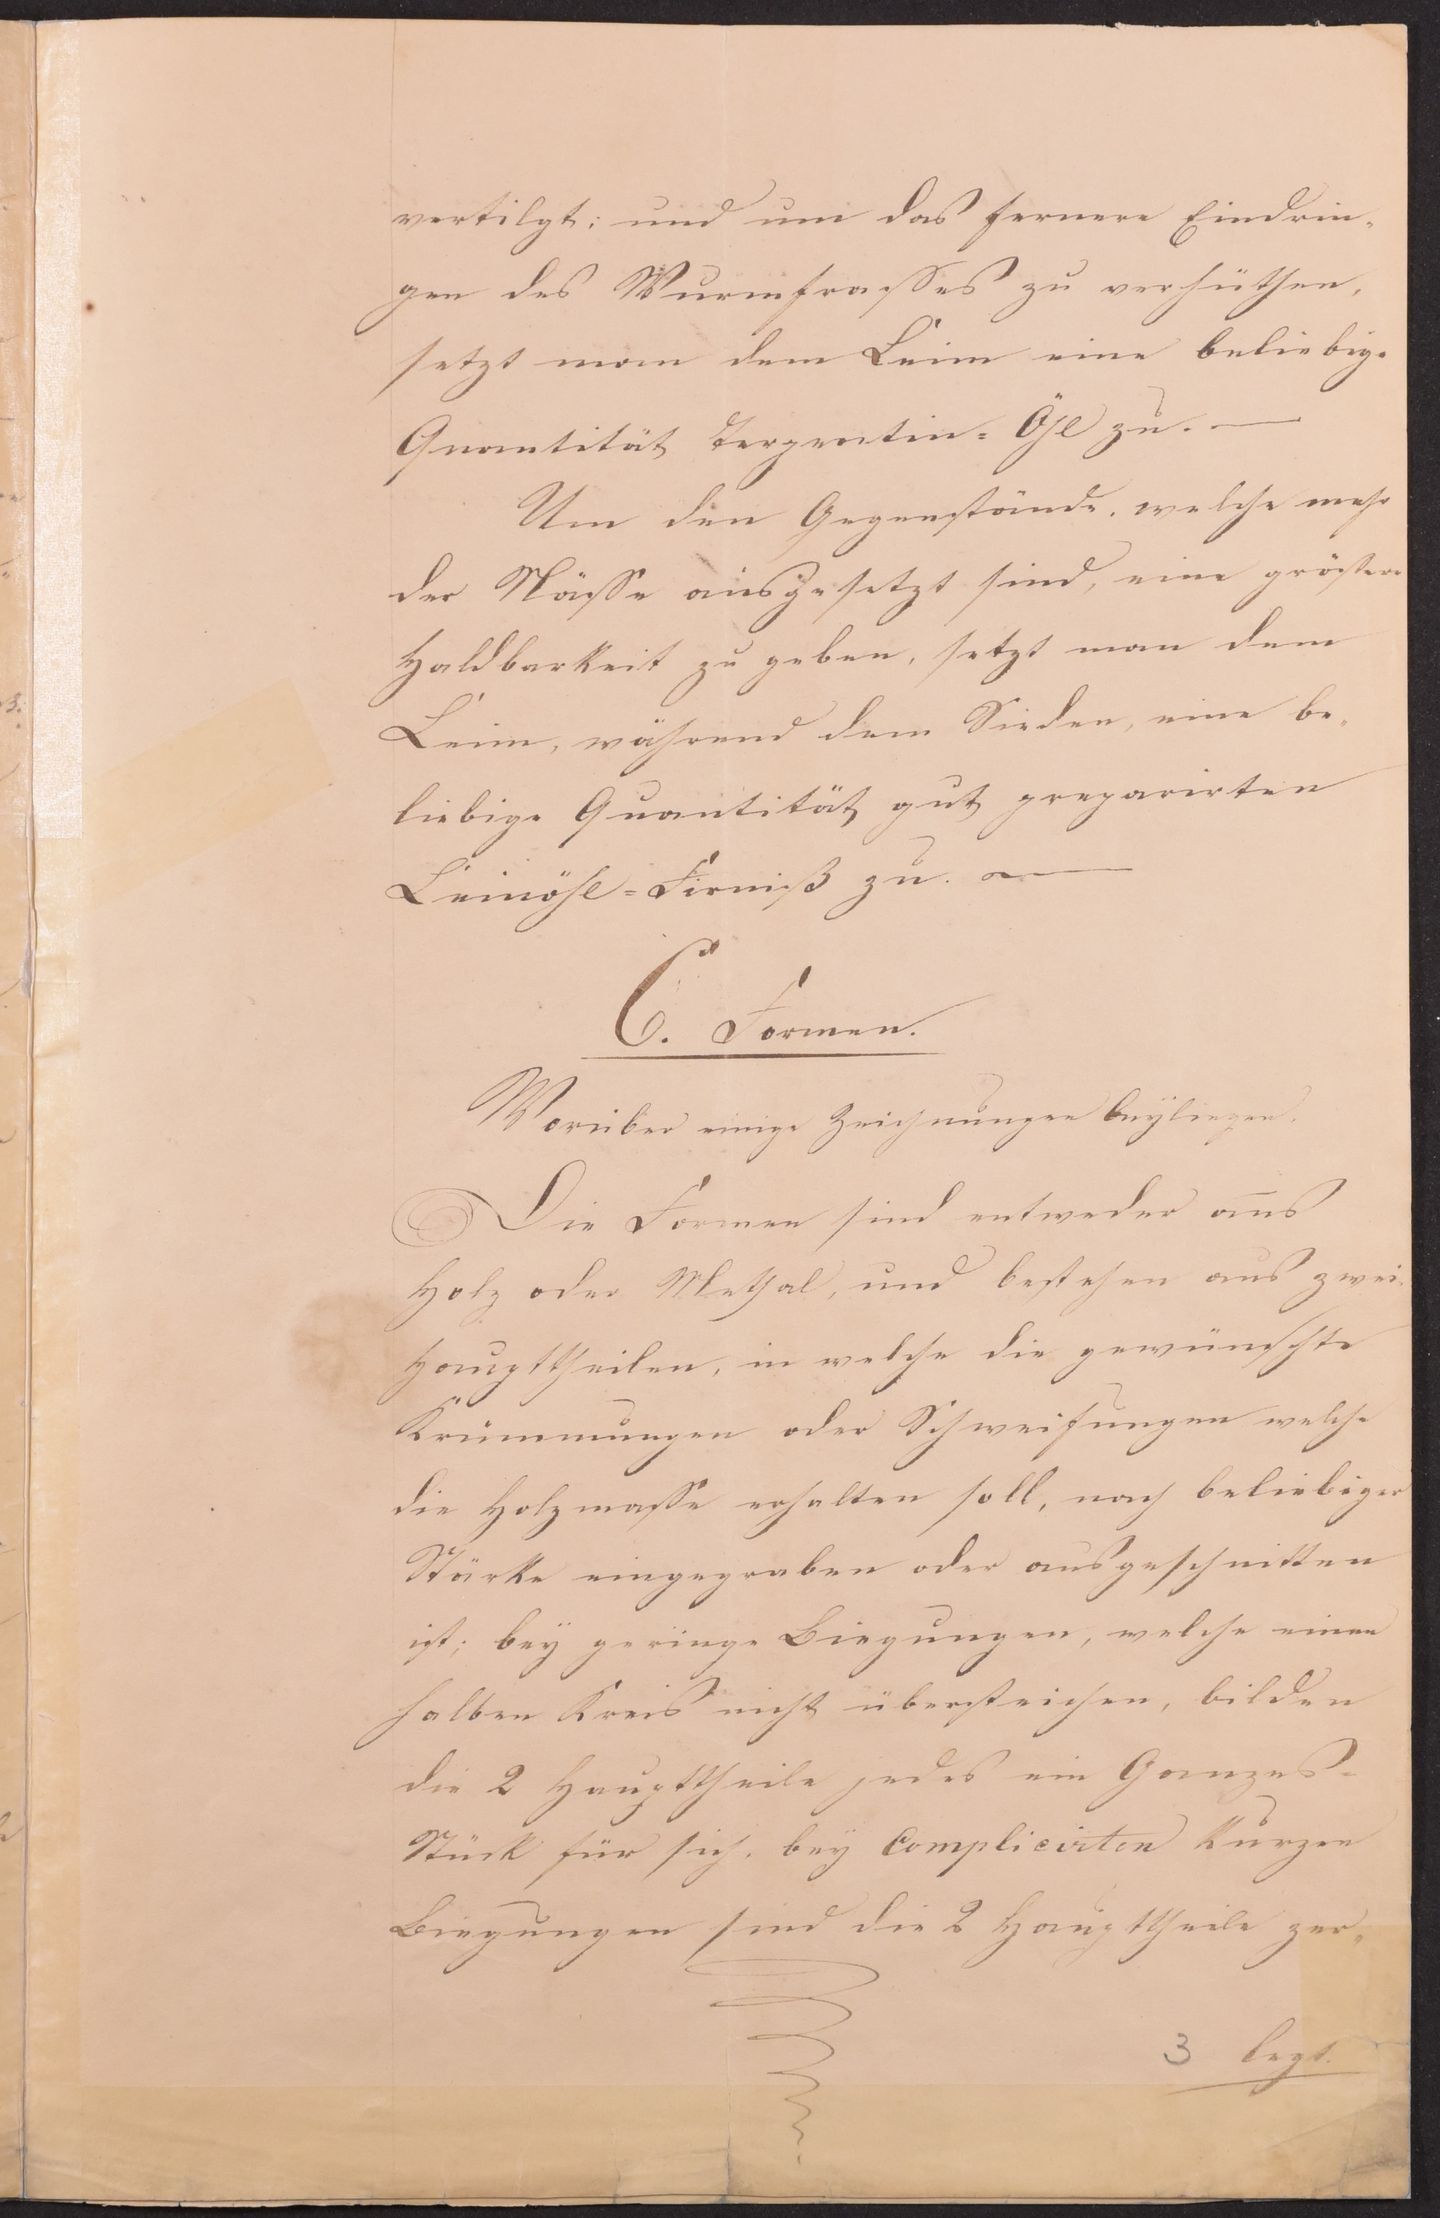 vertilgt; und um das fernere Eindrin-
gen des Wurmfrasses zu verhüthen,
setzt man dem Leim eine beliebige
Quantität Terpentin-Öhl zu. —
Um den Gegenstände, welche mehr
der Nässe ausgesetzt sind, eine grössere
Haldbarkeit zu geben, setzt man dem
Leim, während dem Sieden, eine be-
liebige Quantität gut preparirten
Leinöhl-Firniß zu. —
C. Formen.
Worüber einige Zeichnungen beyliegen.
Die Formen sind entweder aus
Holz oder Methal, und bestehen aus zwei
Haupttheilen, in welche die gewünschte
Krümmungen oder Schweifungen welche
die Holzmasse erhalten soll, nach beliebiger
Stärke eingegraben oder ausgeschnitten
ist; bey geringe Biegungen, welche einen
halben Kreis nicht übersteichen, bilden
die 2 Haupttheile jedes ein Ganzes-
Stück für sich, bey Complicirten Kurzen
Biegungen sind die 2 Haupttheile zer-
3 legt.